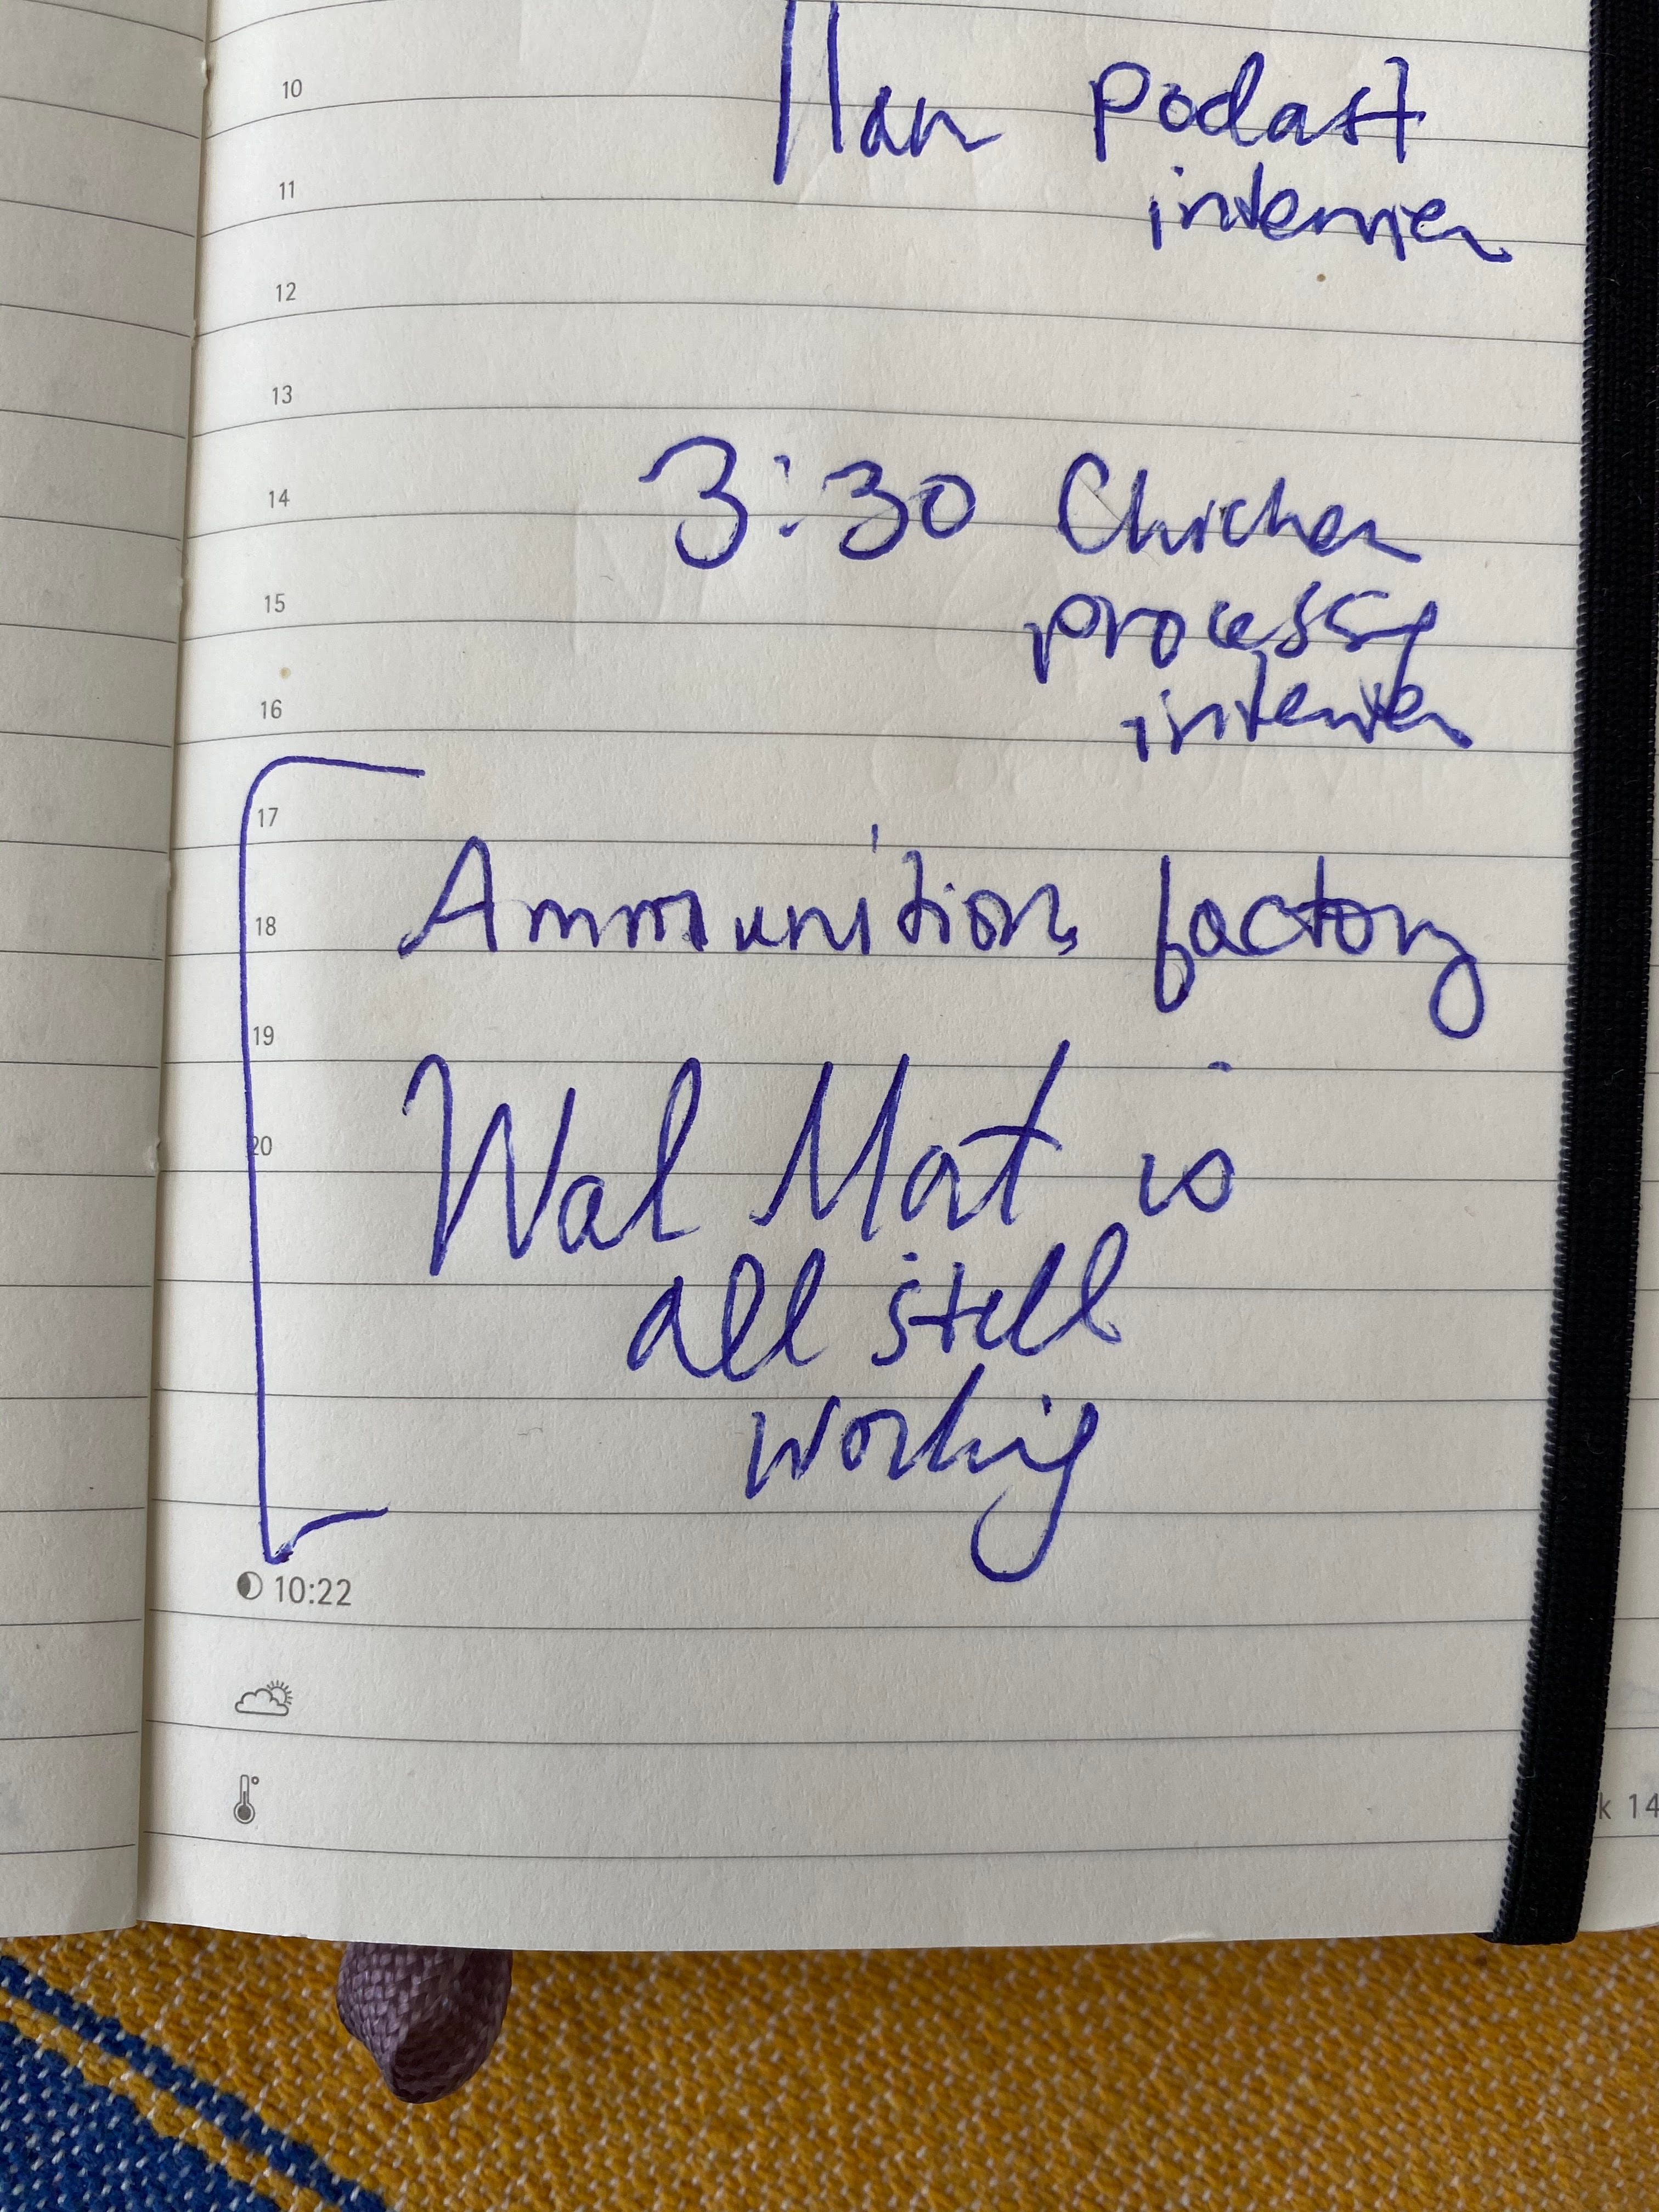 10
11am Podcast
11
interview
12
13
3:30 Chicken
14
15
processing
16
interview
17
Ammunitions factory
18
19
Wal Mart is
20
all still
working
10:22
k 14